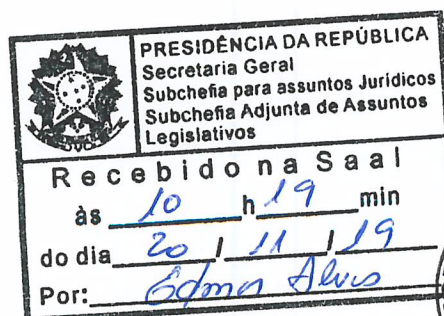 PRESIDÊNCIA DA REPÚBLICA
Secretaria Geral
Subchefia para assuntos Jurídicos
Subchefia Adjunta de Assuntos
Legislativos
Recebido na Saal
às 10 h 19 min
do dia 20 / 11 / 19
Por: Alves